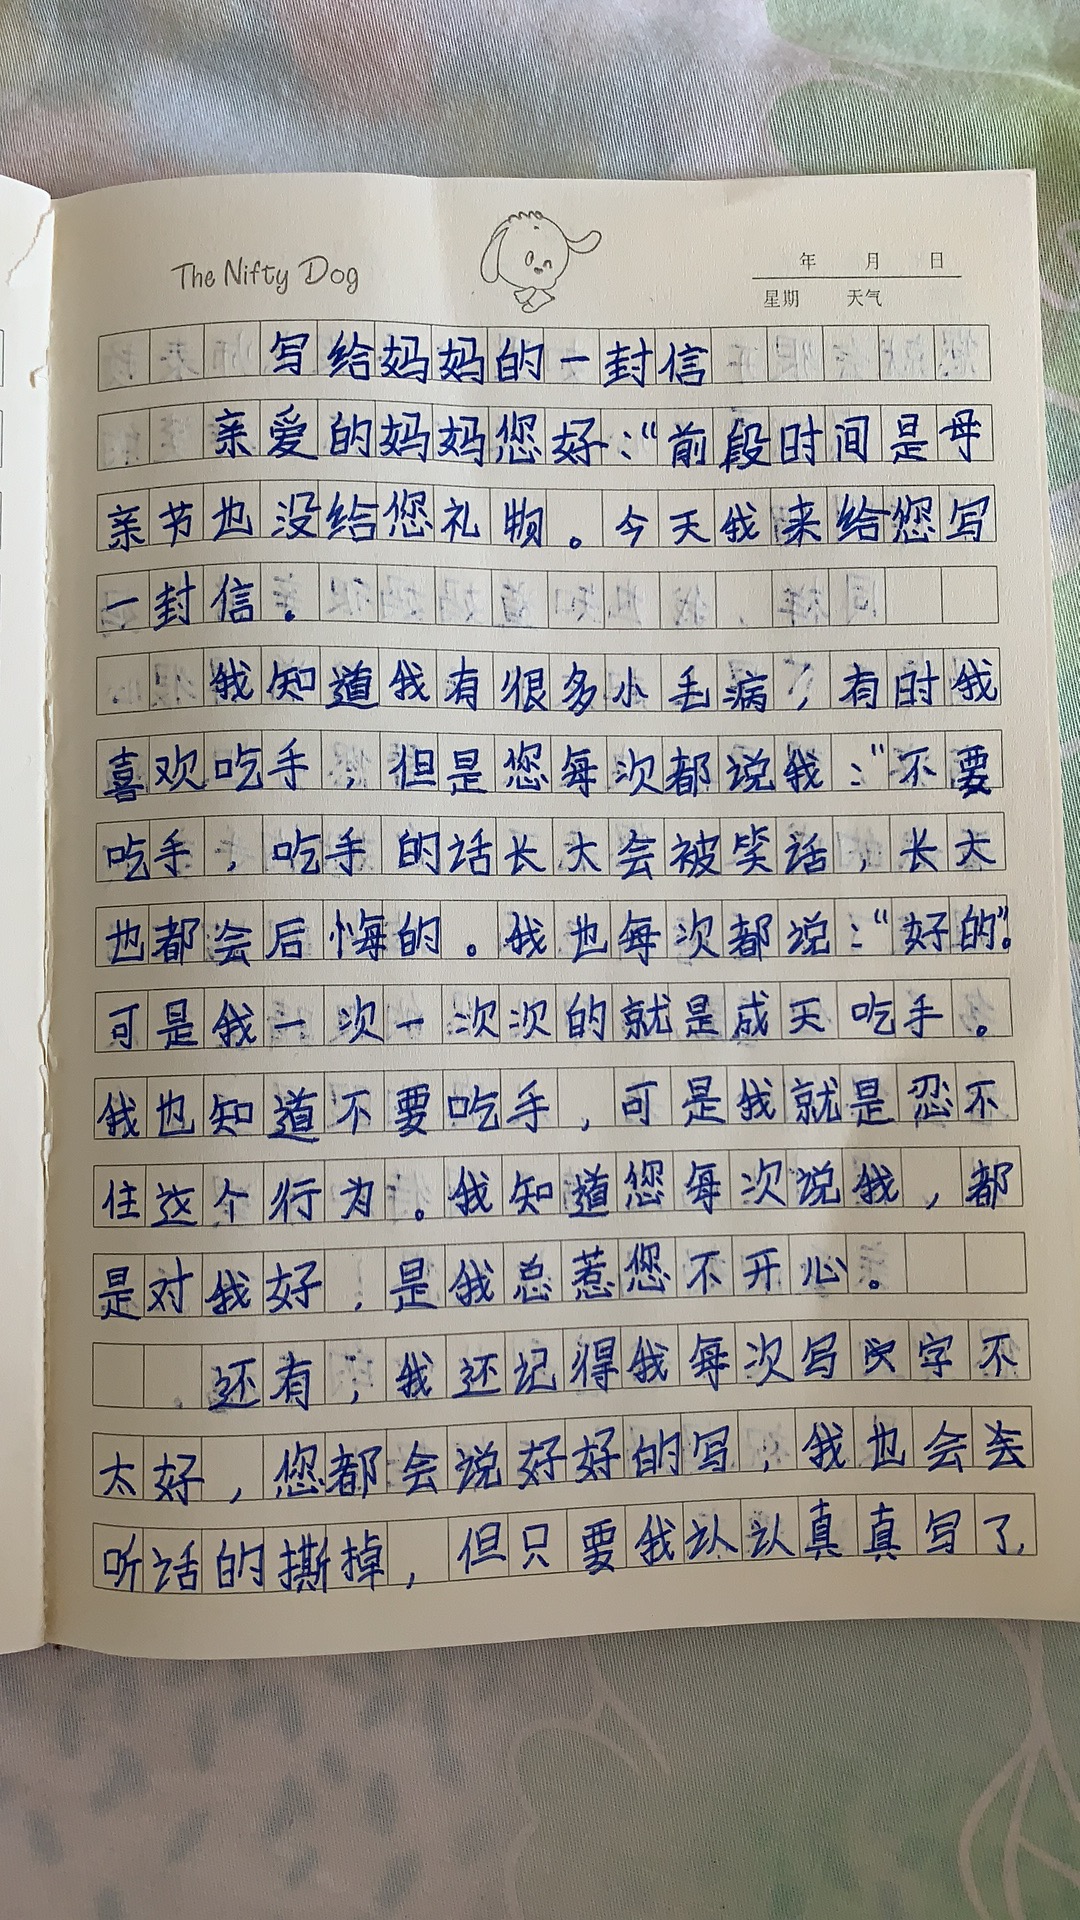 The Nifty Dog
年 月 日
星期 天气
写给妈妈的一封信
亲爱的妈妈您好：“前段时间是母
亲节也没给您礼物。今天我来给您写
一封信。
我知道我有很多小毛病，有时我
喜欢吃手，但是您每次都说我：“不要
吃手，吃手的话长大会被笑话，长大
也都会后悔的。我也每次都说：“好的”。
可是我一次一次次的就是成天吃手。
我也知道不要吃手，可是我就是忍不
住这个行为。我知道您每次说我，都
是对我好，是我总惹您不开心。
还有，我还记得我每次写字不
太好，您都会说好好的写，我也会
听话的撕掉，但只要我认认真真写了，